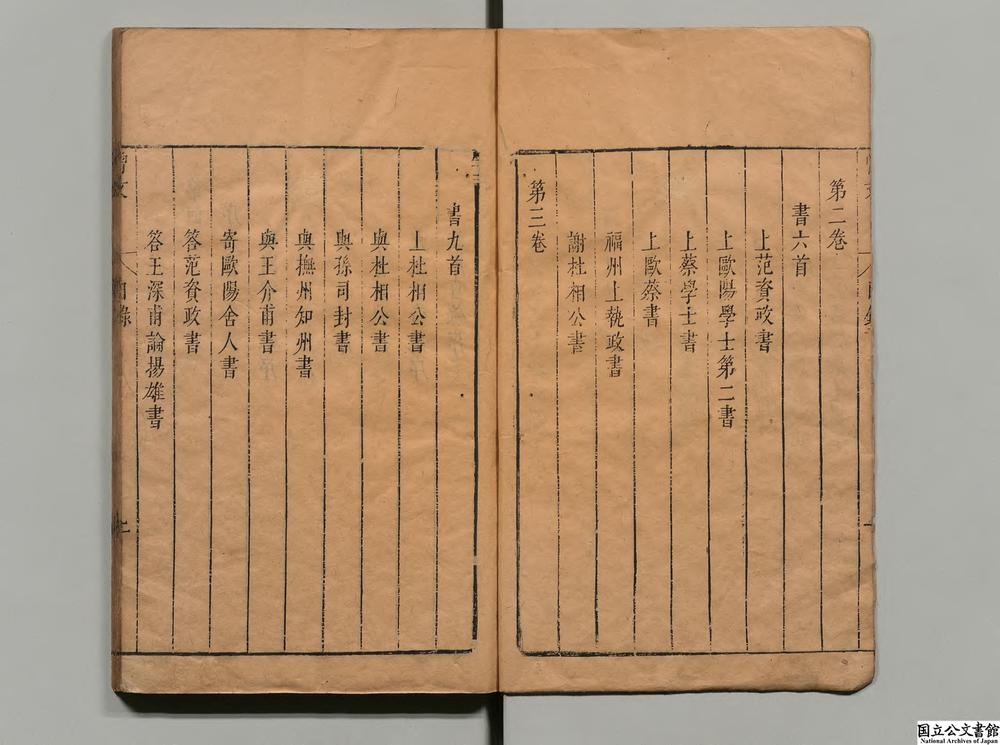 第二卷
書六首
上范資政書
上歐陽學士第二書
上蔡學士書
上歐蔡書
福州上執政書
謝杜相公書
第三卷
書九首
上杜相公書
與杜相公書
與孫司封書
與撫州知州書
與王介甫書
寄歐陽舍人書
答范資政書
答王深甫論揚雄書
目錄
国立公文書館
National Archives of Japan